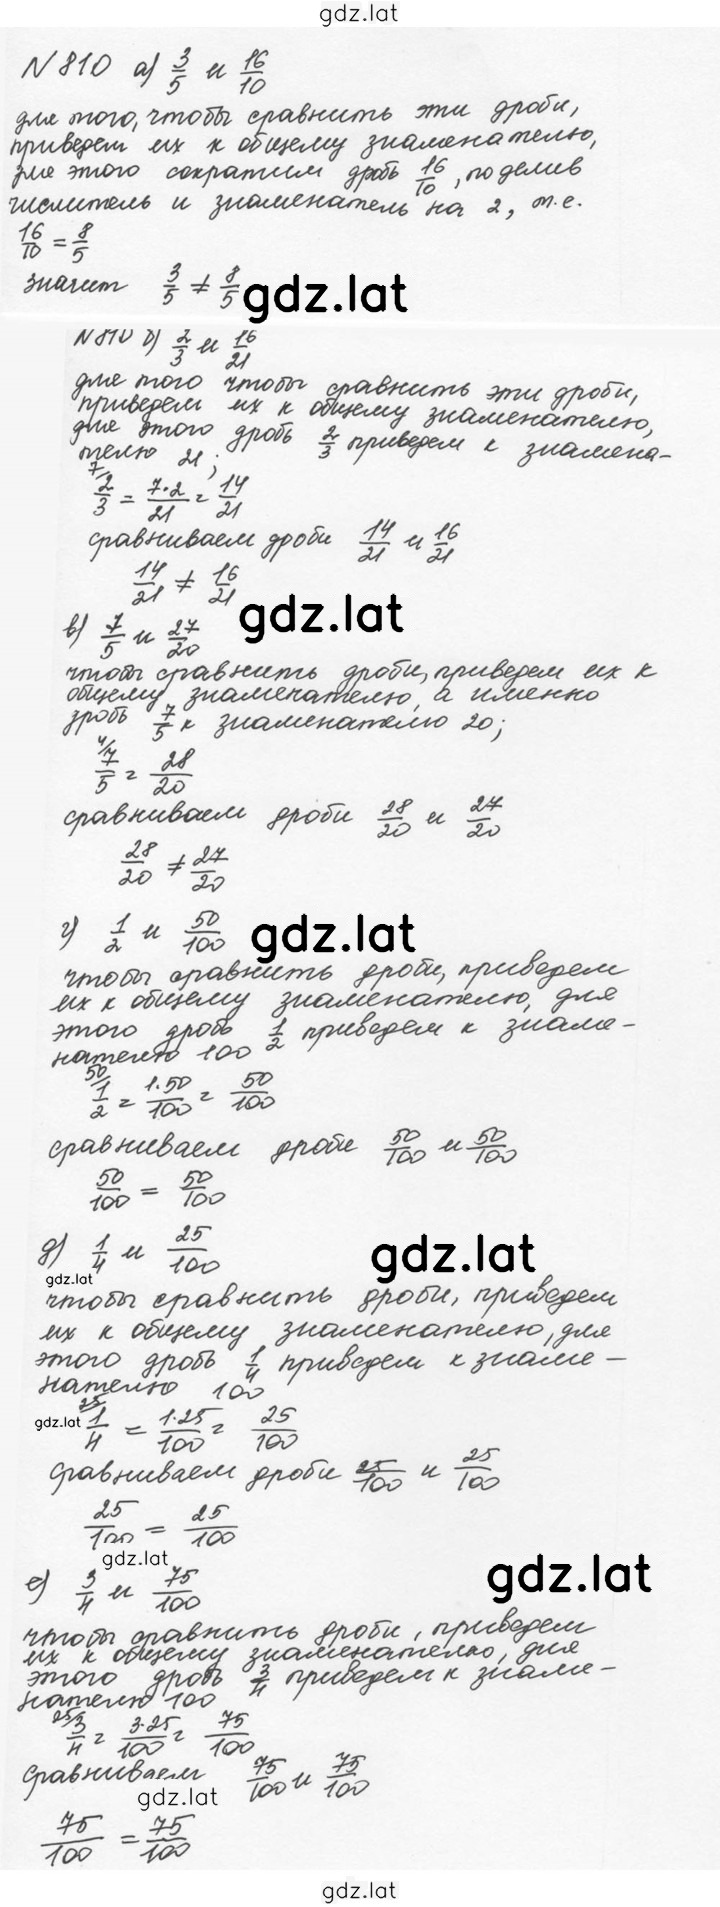 gdz.lat
N 810 а) 3/5 и 16/10
для того, чтобы сравнить эти дроби,
приведем их к общему знаменателю,
для этого сократим дробь 16/10, поделив
числитель и знаменатель на 2, т.е.
16/10 = 8/5
значит 3/5 ≠ 8/5
gdz.lat
N 810 б) 2/3 и 16/21
для того чтобы сравнить эти дроби,
приведем их к общему знаменателю,
для этого дробь 2/3 приведем к знамена-
телю 21;
7/ 2/3 = 7·2/21 = 14/21
сравниваем дроби 14/21 и 16/21
14/21 ≠ 16/21
gdz.lat
в) 7/5 и 27/20
чтобы сравнить дроби, приведем их к
общему знаменателю, а именно
дробь 7/5 к знаменателю 20;
4/ 7/5 = 28/20
сравниваем дроби 28/20 и 27/20
28/20 ≠ 27/20
г) 1/2 и 50/100
gdz.lat
чтобы сравнить дроби, приведем
их к общему знаменателю, для
этого дробь 1/2 приведем к знаме-
нателю 100
50/ 1/2 = 1·50/100 = 50/100
сравниваем дроби 50/100 и 50/100
50/100 = 50/100
д) 1/4 и 25/100
gdz.lat
gdz.lat
чтобы сравнить дроби, приведем
их к общему знаменателю, для
этого дробь 1/4 приведем к знаме-
нателю 100
gdz.lat
25/ 1/4 = 1·25/100 = 25/100
сравниваем дроби 25/100 и 25/100
25/100 = 25/100
gdz.lat
е) 3/4 и 75/100
gdz.lat
чтобы сравнить дроби, приведем
их к общему знаменателю, для
этого дробь 3/4 приведем к знаме-
нателю 100
25/ 3/4 = 3·25/100 = 75/100
сравниваем 75/100 и 75/100
gdz.lat
75/100 = 75/100
gdz.lat